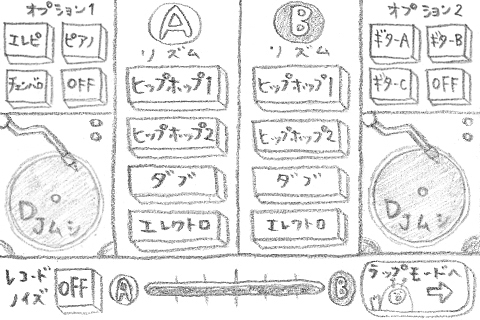 オプション1
エレピ
ピアノ
チェンバロ
OFF
A
リズム
ヒップホップ1
ヒップホップ2
ダブ
エレクトロ
B
リズム
ヒップホップ1
ヒップホップ2
ダブ
エレクトロ
オプション2
ギターA
ギターB
ギターC
OFF
DJムシ
DJムシ
レコード
ノイズ
OFF
A
B
ラップモードへ